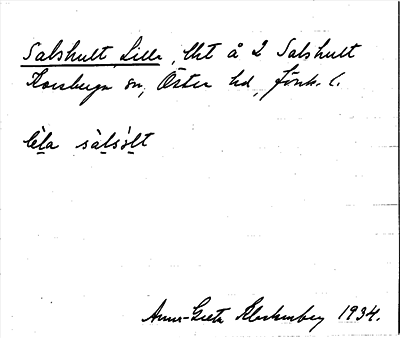 Salshult Lilla, lht å 2 Salshult
Korsberga sn, Östra hd, Jönk. l.
lìla sàlsòlt
Anna-Greta Blechenberg 1934.